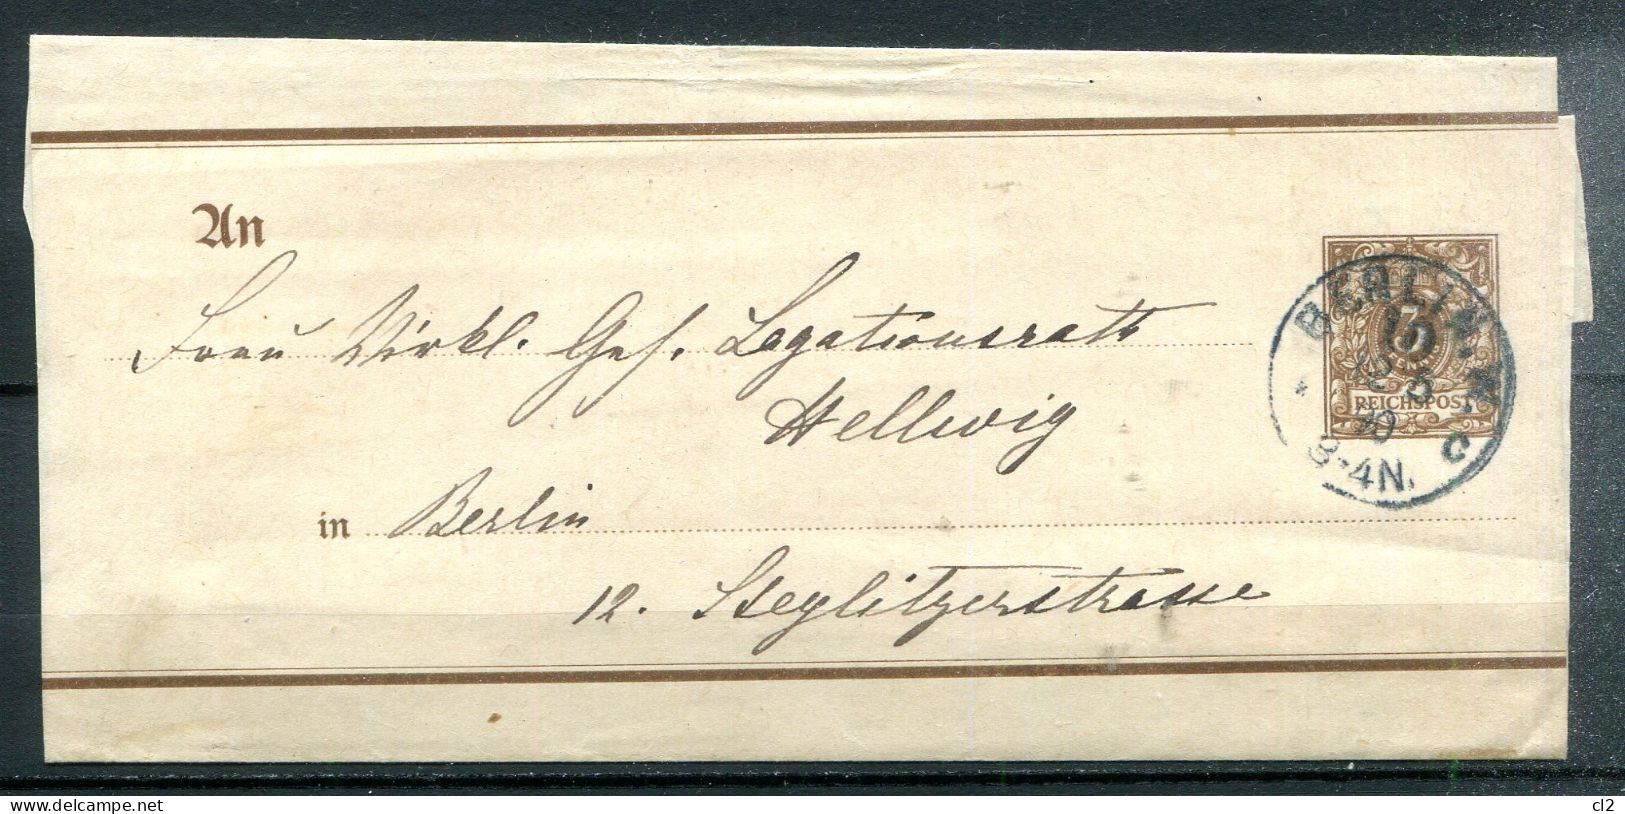 An
Frau Wirkl. Geh. Legationsrath
Hellwig
in Berlin
12. Steglitzerstrasse
BERLIN, W.
3
REICHSPOST
3-4N.
C
delcampe.net
cl2